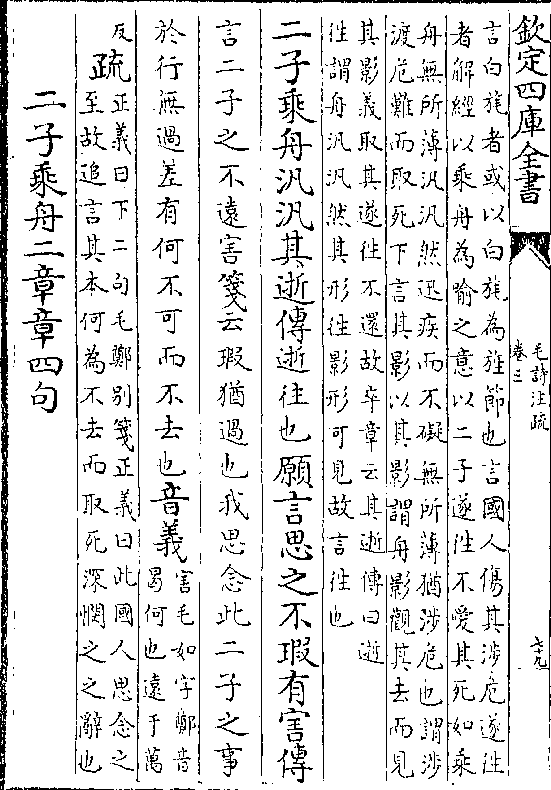 欽定四庫全書
毛詩注疏
卷三
言白旄者或以白旄為旌節也言國人傷其涉危遂往
者解經以乘舟為喻之意以二子遂往不愛其死如乘
舟無所薄汎汎然迅疾而不礙無所薄猶涉危也謂涉
渡危難而取死下言其影以其影謂舟影觀其去而見
其影義取其遂往不還故卒章云其逝傳曰逝
往謂舟汎汎然其形往影形可見故言往也
二子乘舟汎汎其逝傳逝往也願言思之不瑕有害傳
言二子之不遠害箋云瑕猶過也我思念此二子之事
於行無過差有何不可而不去也音義害毛如字鄭音
曷何也遠于萬
反疏正義曰下二句毛鄭別箋正義曰此國人思念之
至故追言其本何為不去而取死深憫之之辭也
二子乘舟二章章四句